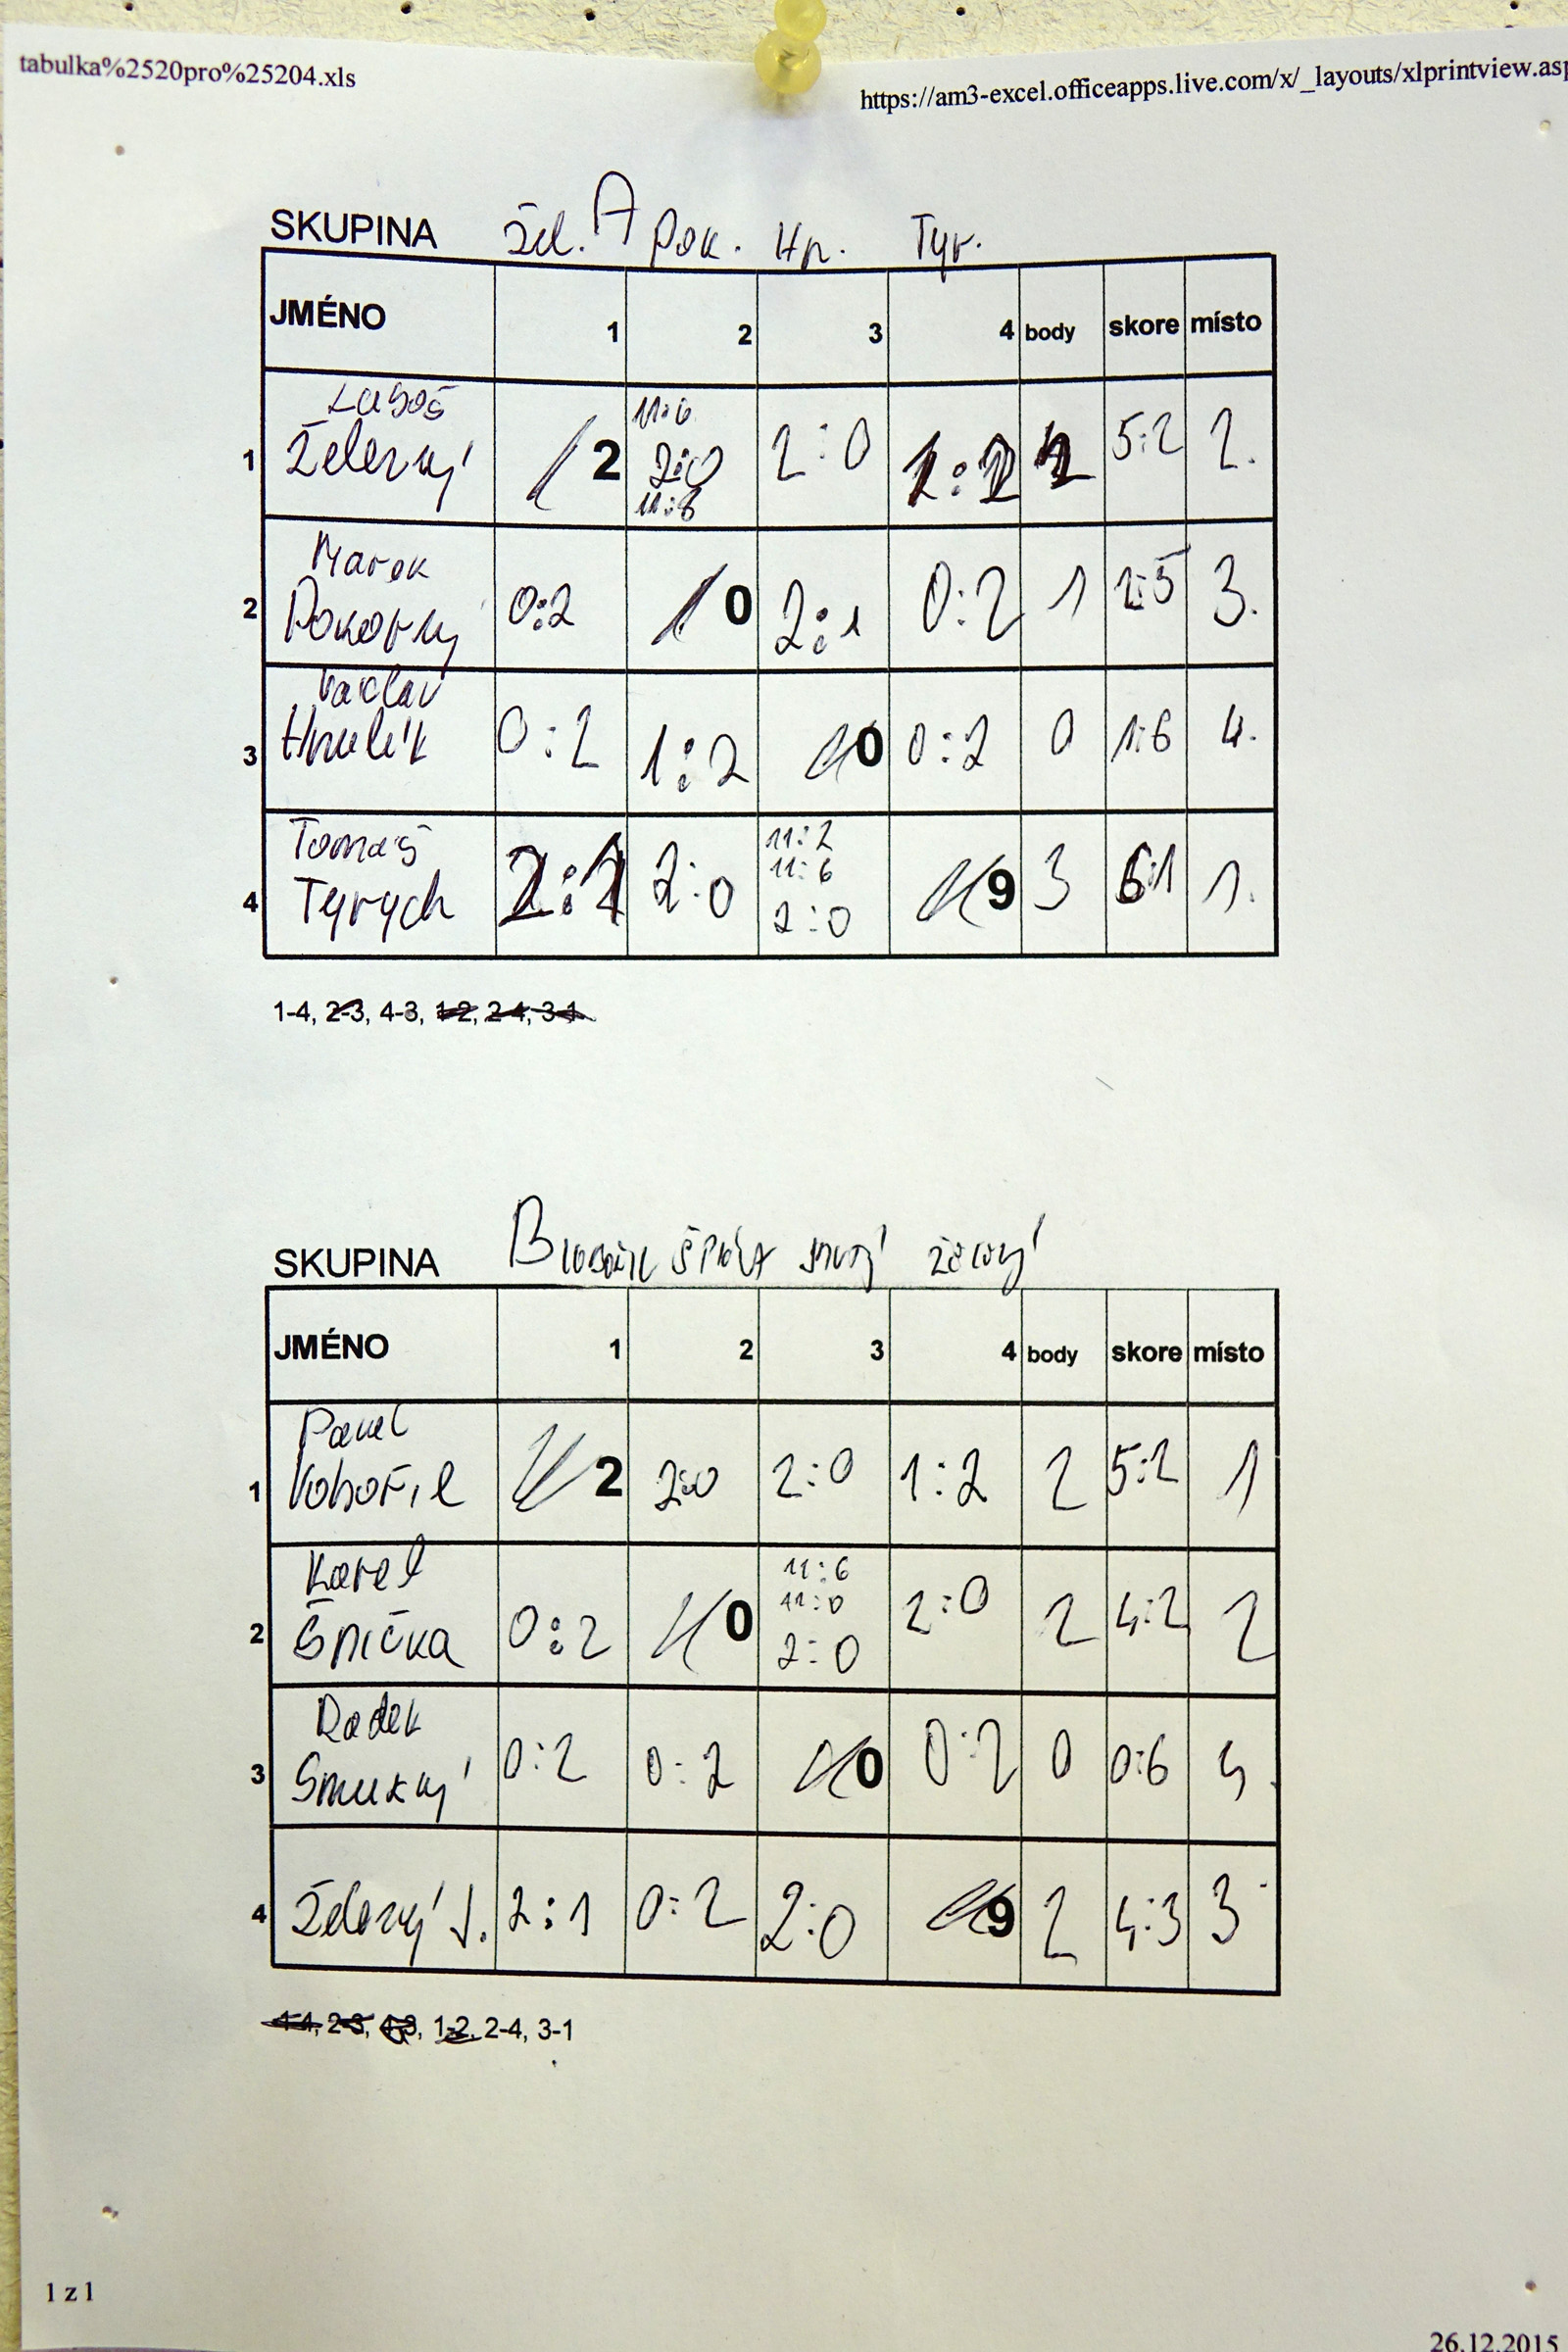 tabulka%2520pro%25204.xls
https://am3-excel.officeapps.live.com/x/_layouts/xlprintview.asp
SKUPINA Žel. A Pok. Hr. Tyr.
JMÉNO 1 2 3 4 body skore místo
1 Luboš Železný 2 11:6 2:0 11:8 2:0 1:2 2 5:2 2.
2 Marek Pokorný 0:2 0 2:1 0:2 1 2:5 3.
3 Václav 0:2 1:2 0 0:2 0 1:6 4.
4 Tomáš Tyrych 2:1 2:0 11:2 11:6 2:0 9 3 6:1 1.
1-4, 2-3, 4-3, 1-2, 2-4, 3-1
SKUPINA B
JMÉNO 1 2 3 4 body skore místo
1 Pavel Kobořil 2 2:0 2:0 1:2 2 5:2 1
2 Karel Špička 0:2 0 11:6 11:0 2:0 2:0 2 4:2 2
3 Radek Smukný 0:2 0:2 0 0:2 0 0:6 4
4 Železný J. 2:1 0:2 2:0 9 2 4:3 3
1-4, 2-3, 4-3, 1-2, 2-4, 3-1
1 z 1
26.12.2015